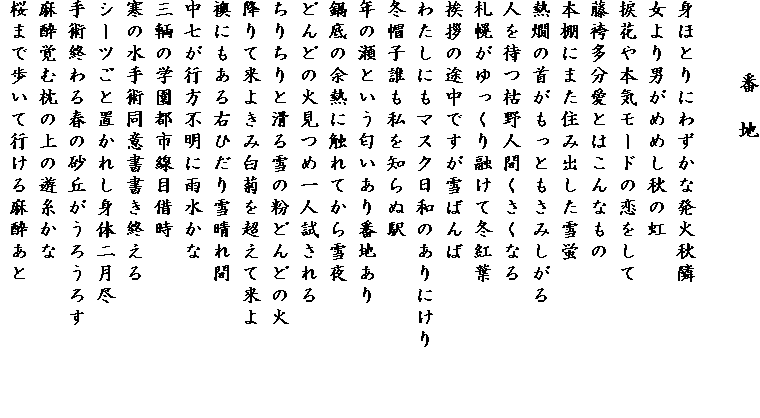 番地
身ほとりにわずかな発火秋隣
女より男がめめし秋の虹
捩花や本気モードの恋をして
藤袴多分愛とはこんなもの
本棚にまた住み出した雪蛍
熱燗の首がもっともさみしがる
人を待つ枯野人間くさくなる
札幌がゆっくり融けて冬紅葉
挨拶の途中ですが雪ばんば
わたしにもマスク日和のありにけり
冬帽子誰も私を知らぬ駅
年の瀬という匂いあり番地あり
鍋底の余熱に触れてから雪夜
どんどの火見つめ一人試される
ちりちりと滑る雪の粉どんどの火
降りて来よきみ白菊を超えて来よ
襖にもある右ひだり雪晴れ間
中七が行方不明に雨水かな
三輌の学園都市線目借時
寒の水手術同意書書き終える
シーツごと置かれし身体二月尽
手術終わる春の砂丘がうろうろす
麻酔覚む枕の上の遊糸かな
桜まで歩いて行ける麻酔あと